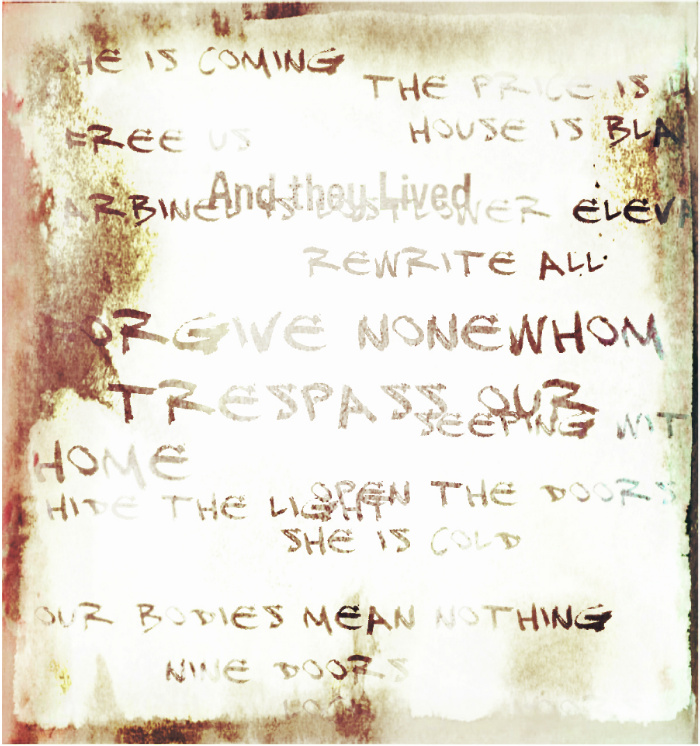 SHE IS COMING
THE PRICE IS
FREE US
HOUSE IS BLA
And they Lived
ARBINE IS LOST LOWER ELEVA
REWRITE ALL
FORGIVE NONEWHOM
TRESPASS OUR
SEEPING WIT
HOME
OPEN THE DOORS
HIDE THE LIGHT
SHE IS COLD
OUR BODIES MEAN NOTHING
NINE DOORS